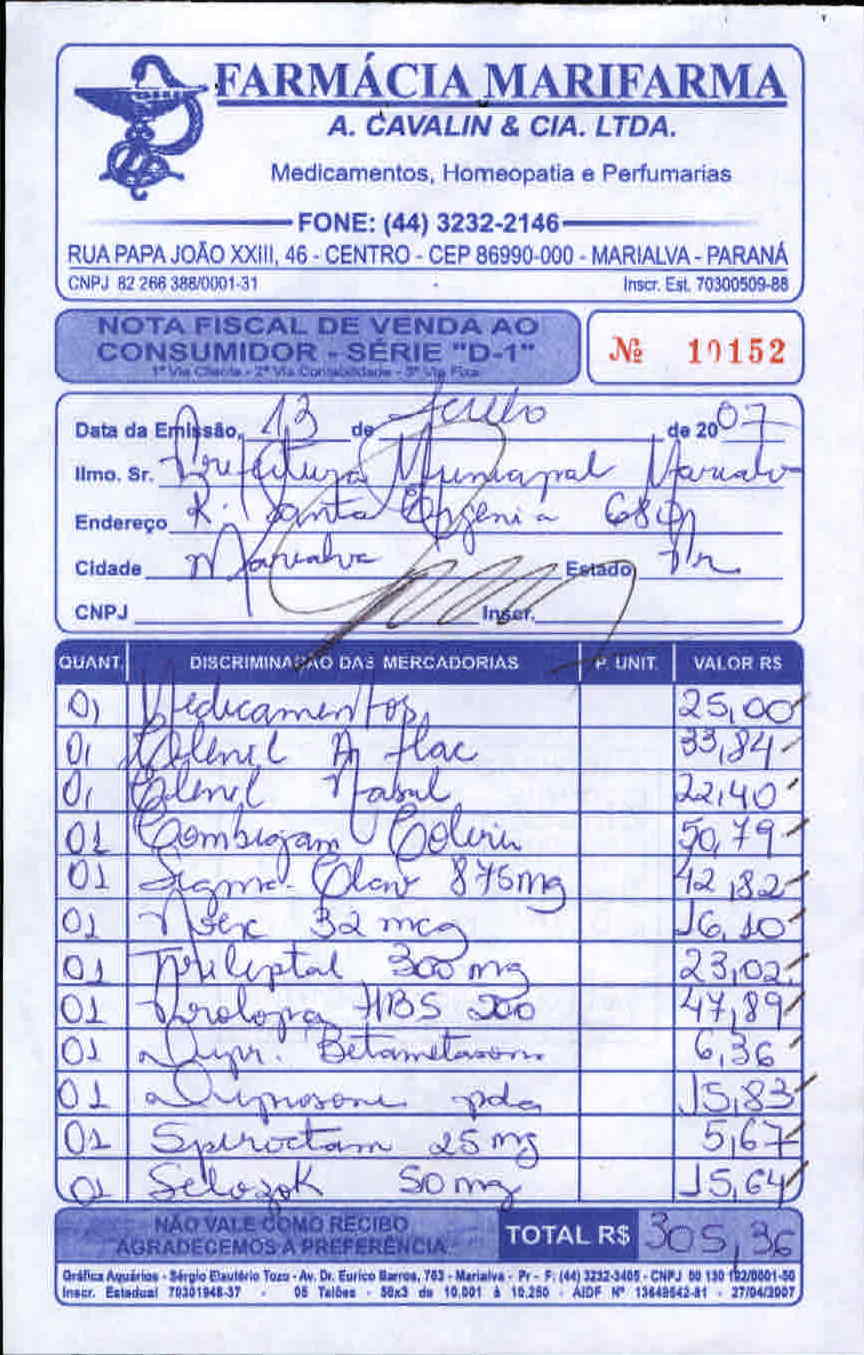 FARMÁCIA MARIFARMA
A. CAVALIN & CIA. LTDA.
Medicamentos, Homeopatia e Perfumarias
FONE: (44) 3232-2146
RUA PAPA JOÃO XXIII, 46 - CENTRO - CEP 86990-000 - MARIALVA - PARANÁ
CNPJ 82 266 388/0001-31 Inscr. Est. 70300509-88
NOTA FISCAL DE VENDA AO
CONSUMIDOR - SÉRIE "D-1"
1ª Via Cliente - 2ª Via Contabilidade - 3ª Via Fixa
Nº 10152
Data da Emissão, 13 de Julho de 2007
Ilmo. Sr. Prefeitura Municipal Marialva
Endereço R. Santa Efigenia 680
Cidade Marialva Estado Pr
CNPJ Inscr.
QUANT. DISCRIMINAÇÃO DAS MERCADORIAS P. UNIT. VALOR R$
01 Medicamentos 25,00
01 Clenil A flac 33,84
01 Clenil Nasal 22,40
01 Combigan Colirio 50,79
01 Sigma-Clav 875mg 42,82
01 32 mcg 16,10
01 Trileptal 300 mg 23,02
01 Prolopa HBS 200 47,89
01 Dipr. Betametasona 6,36
01 Diprosone pda 15,83
01 Spiroctam 25 mg 5,67
01 Selozok 50 mg 15,64
NÃO VALE COMO RECIBO
AGRADECEMOS A PREFERÊNCIA
TOTAL R$ 305,36
Gráfica Aquários - Sérgio Elautério Tozo - Av. Dr. Eurico Barros, 763 - Marialva - Pr - F: (44) 3232-3405 - CNPJ 00 130 192/0001-50
Inscr. Estadual 70301948-37 - 05 Talões - 50x3 de 10.001 à 10.250 - AIDF Nº 13649542-81 - 27/04/2007